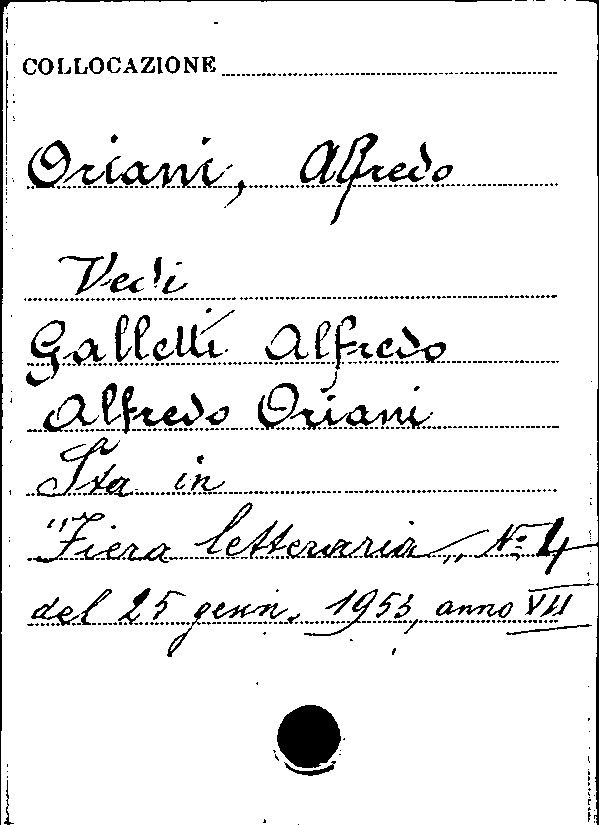 COLLOCAZIONE
Oriani, Alfredo
Vedi
Galletti Alfredo
Alfredo Oriani
Sta in
"Fiera letteraria„ Nº 4
del 25 genn. 1953, anno VII